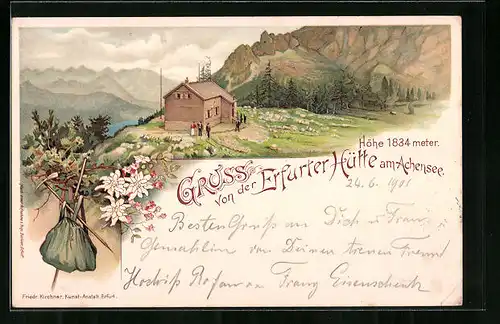 Höhe 1834 meter.
Gruss von der Erfurter Hütte am Achensee.
24.6.1901
Besten Gruss an Dich u Franz
Gemahlin von Deinem treuen Freund
Franz Eisenschenk
Friedr. Kirchner, Kunst-Anstalt, Erfurt.